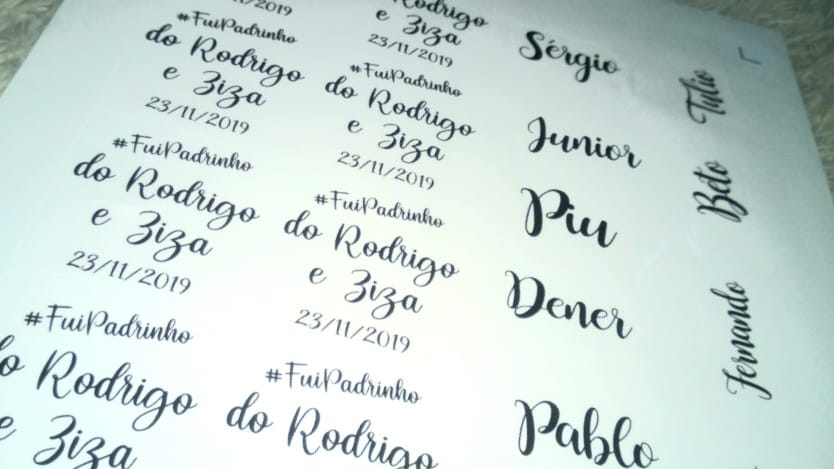 23/11/2019
#FuiPadrinho
do Rodrigo
e Ziza
23/11/2019
#FuiPadrinho
do Rodrigo
e Ziza
23/11/2019
#FuiPadrinho
do Rodrigo
e Ziza
Rodrigo
e Ziza
23/11/2019
#FuiPadrinho
do Rodrigo
e Ziza
23/11/2019
#FuiPadrinho
do Rodrigo
e Ziza
23/11/2019
#FuiPadrinho
do Rodrigo
Sérgio
Junior
Piu
Dener
Pablo
Tulio
Beto
Fernando